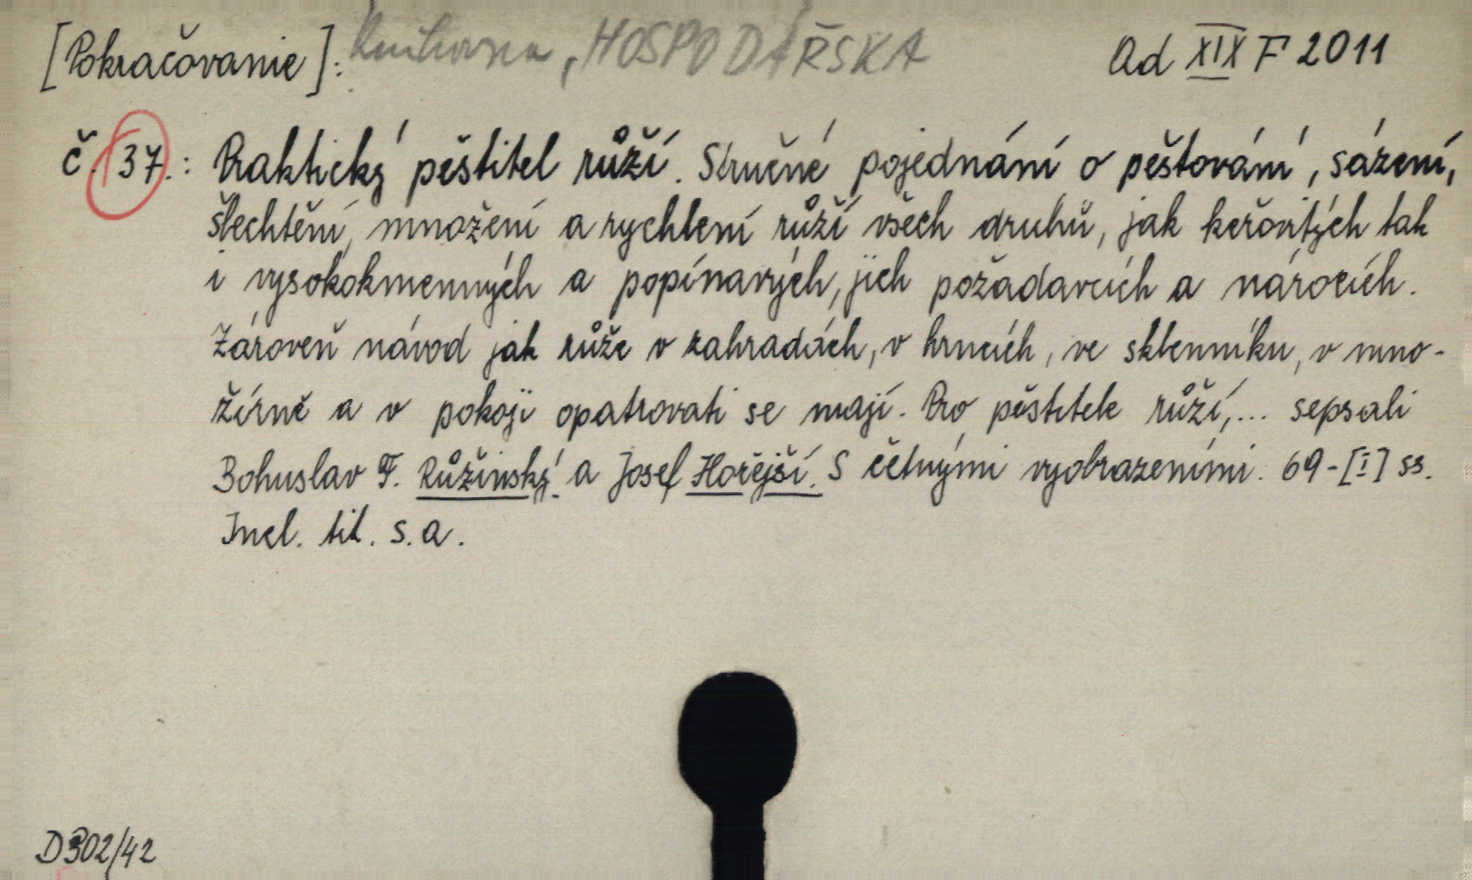 [Pokračovanie]: Knihovna, HOSPODÁŘSKÁ Ad XIX F 2011
č. 137.: Praktický pěstitel růží. Stručné pojednání o pěstování, sázení,
šlechtění, množení a rychlení růží všech druhů, jak keřovitých tak
i vysokokmenných a popínavých, jich požadavcích a nárocích.
Zároveň návod jak růže v zahradách, v hrncích, ve skleníku, v mno-
žírně a v pokoji opatrovati se mají. Pro pěstitele růží,... sepsali
Bohuslav F. Růžinský a Josef Hořejší. S četnými vyobrazeními. 69-[I] ss.
Incl. tit. s.a.
D302/42